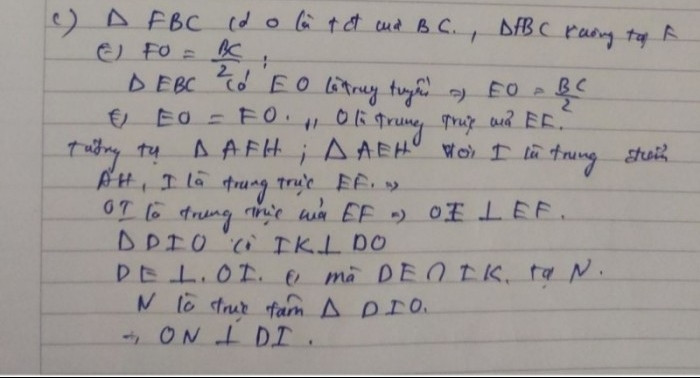 c) Δ FBC có O là tđ của BC., ΔFBC vuông tại F
(=) FO = BC/2 ;
Δ EBC có EO là trung tuyến => EO = BC/2
(=) EO = FO. ,, O là trung trực của EF.
tương tự Δ AFH ; Δ AEH với I là trung điểm
AH, I là trung trực EF. =>
OI là trung trực của EF => OI ⊥ EF.
Δ DIO có IK ⊥ DO
DE ⊥. OI. mà DE ∩ IK. tại N.
N là trực tâm Δ DIO.
=> ON ⊥ DI .